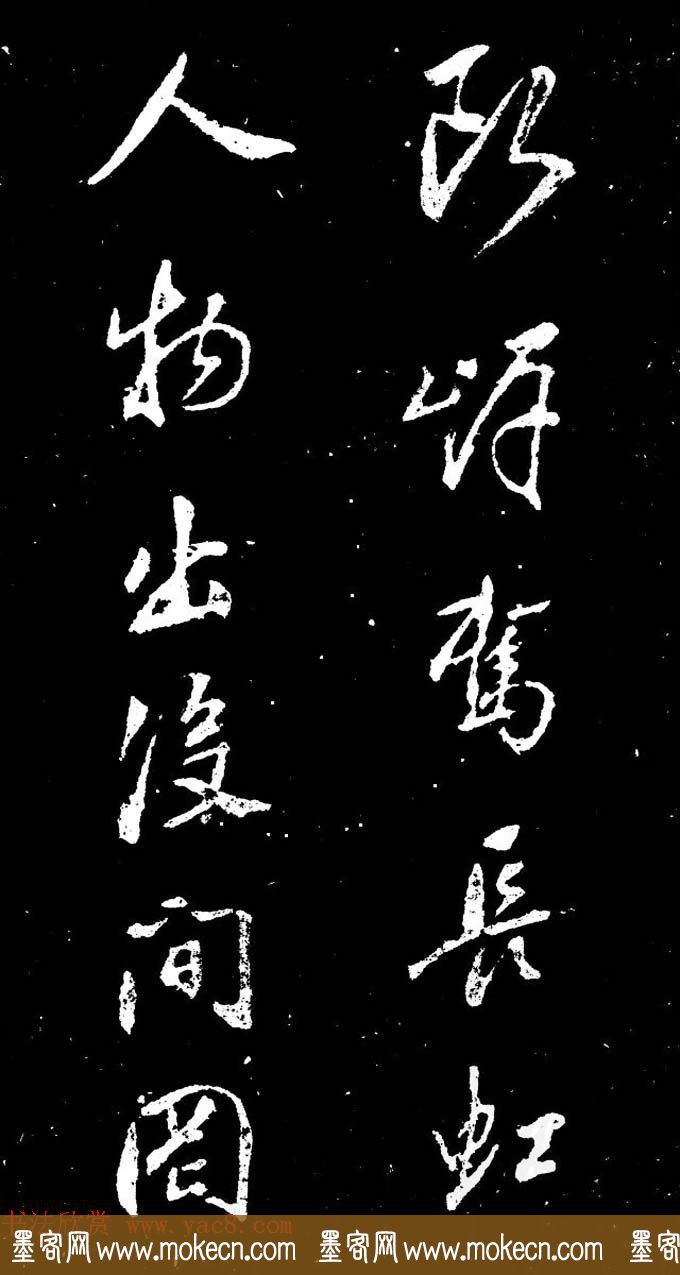 奮長虹
人物出間
书法欣赏 www.yac8.com
墨客网 www.mokecn.com 墨客网 www.mokecn.com 墨客